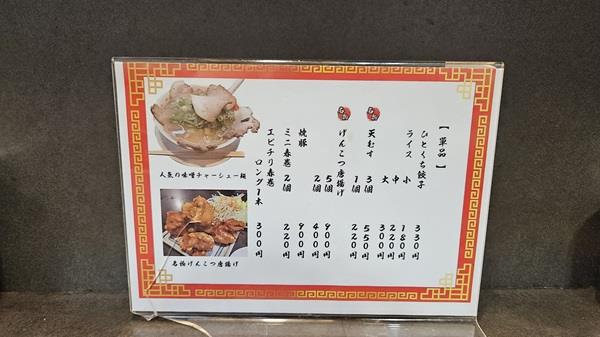 【単品】
ひとくち餃子 330円
ライス 小 180円
中 220円
大 300円
天むす 3個 550円
1個 220円
げんこつ唐揚げ 5個 900円
2個 400円
焼豚 900円
ミニ春巻 2個 220円
エビチリ春巻 ロング1本 300円
人気の味噌チャーシュー麺
名物げんこつ唐揚げ